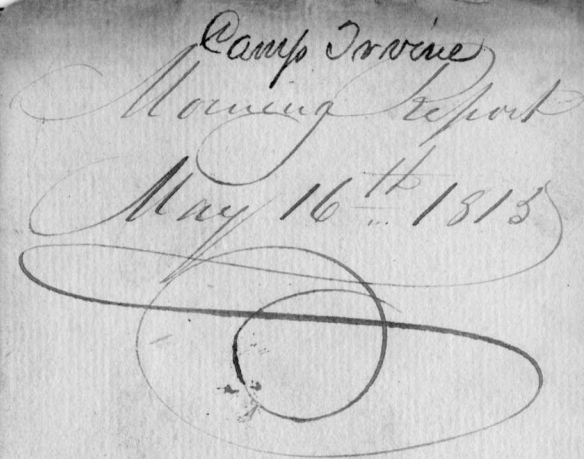 Camp Irvine
Morning Report
May 16th 1813